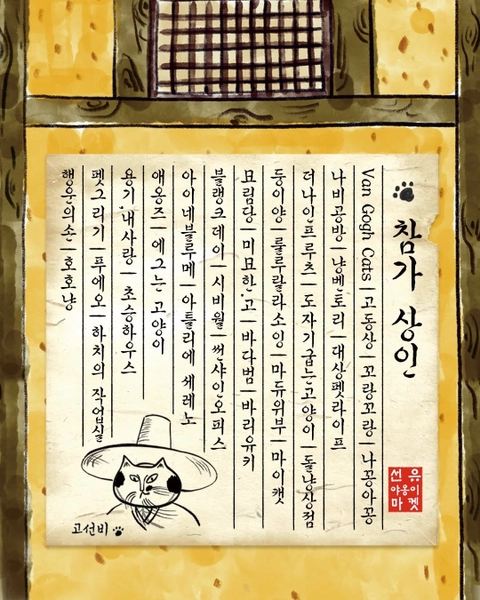 참가 상인
Van Gogh Cats | 고동상 | 꼬랑꼬랑 | 나꽁아꽁
나비공방 | 냥벤토리 | 대상펫라이프
더나인프루츠 | 도자기굽는고양이 | 돌냥상점
둥이양 | 룰루랄라소잉 | 마듀위부 | 마이캣
묘림당 | 미묘한.고 | 바다범 | 바리유키
블랭크 데이 | 시비월 | 썬샤인오피스
아이네블루메 | 아틀리에 세레노
애옹즈 | 에그는 고양이
용기.내사랑 | 초승하우스
펫그리기 | 푸에오 | 하치의 작업실
행운의손 | 호호냥
선유
야옹이
마켓
고선비